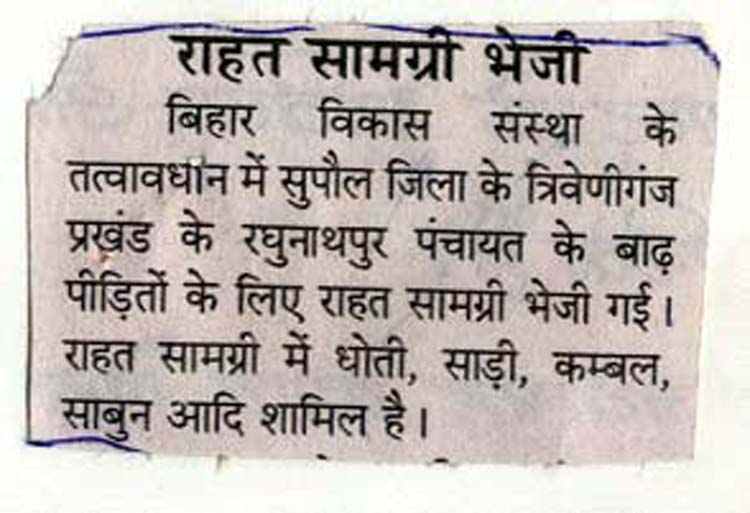 राहत सामग्री भेजी
बिहार विकास संस्था के
तत्वावधान में सुपौल जिला के त्रिवेणीगंज
प्रखंड के रघुनाथपुर पंचायत के बाढ़
पीड़ितों के लिए राहत सामग्री भेजी गई।
राहत सामग्री में धोती, साड़ी, कम्बल,
साबुन आदि शामिल है।